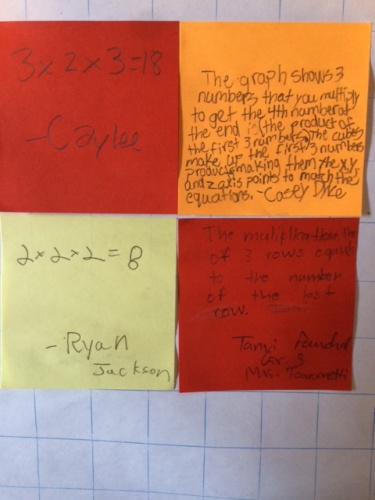 3×2×3=18
-Caylee
The graph shows 3
numbers that you multiply
to get the 4th number at
the end is (the product of
the first 3 numbers). The cubes
make up the first 3 numbers
product making them the xy
and z axis points to match the
equations. -Casey Dike
2×2×2=8
-Ryan
Jackson
The muliplication
of 3 rows equals
to the number
of the last
row.
Tanvi
Gr. 3
Mrs.